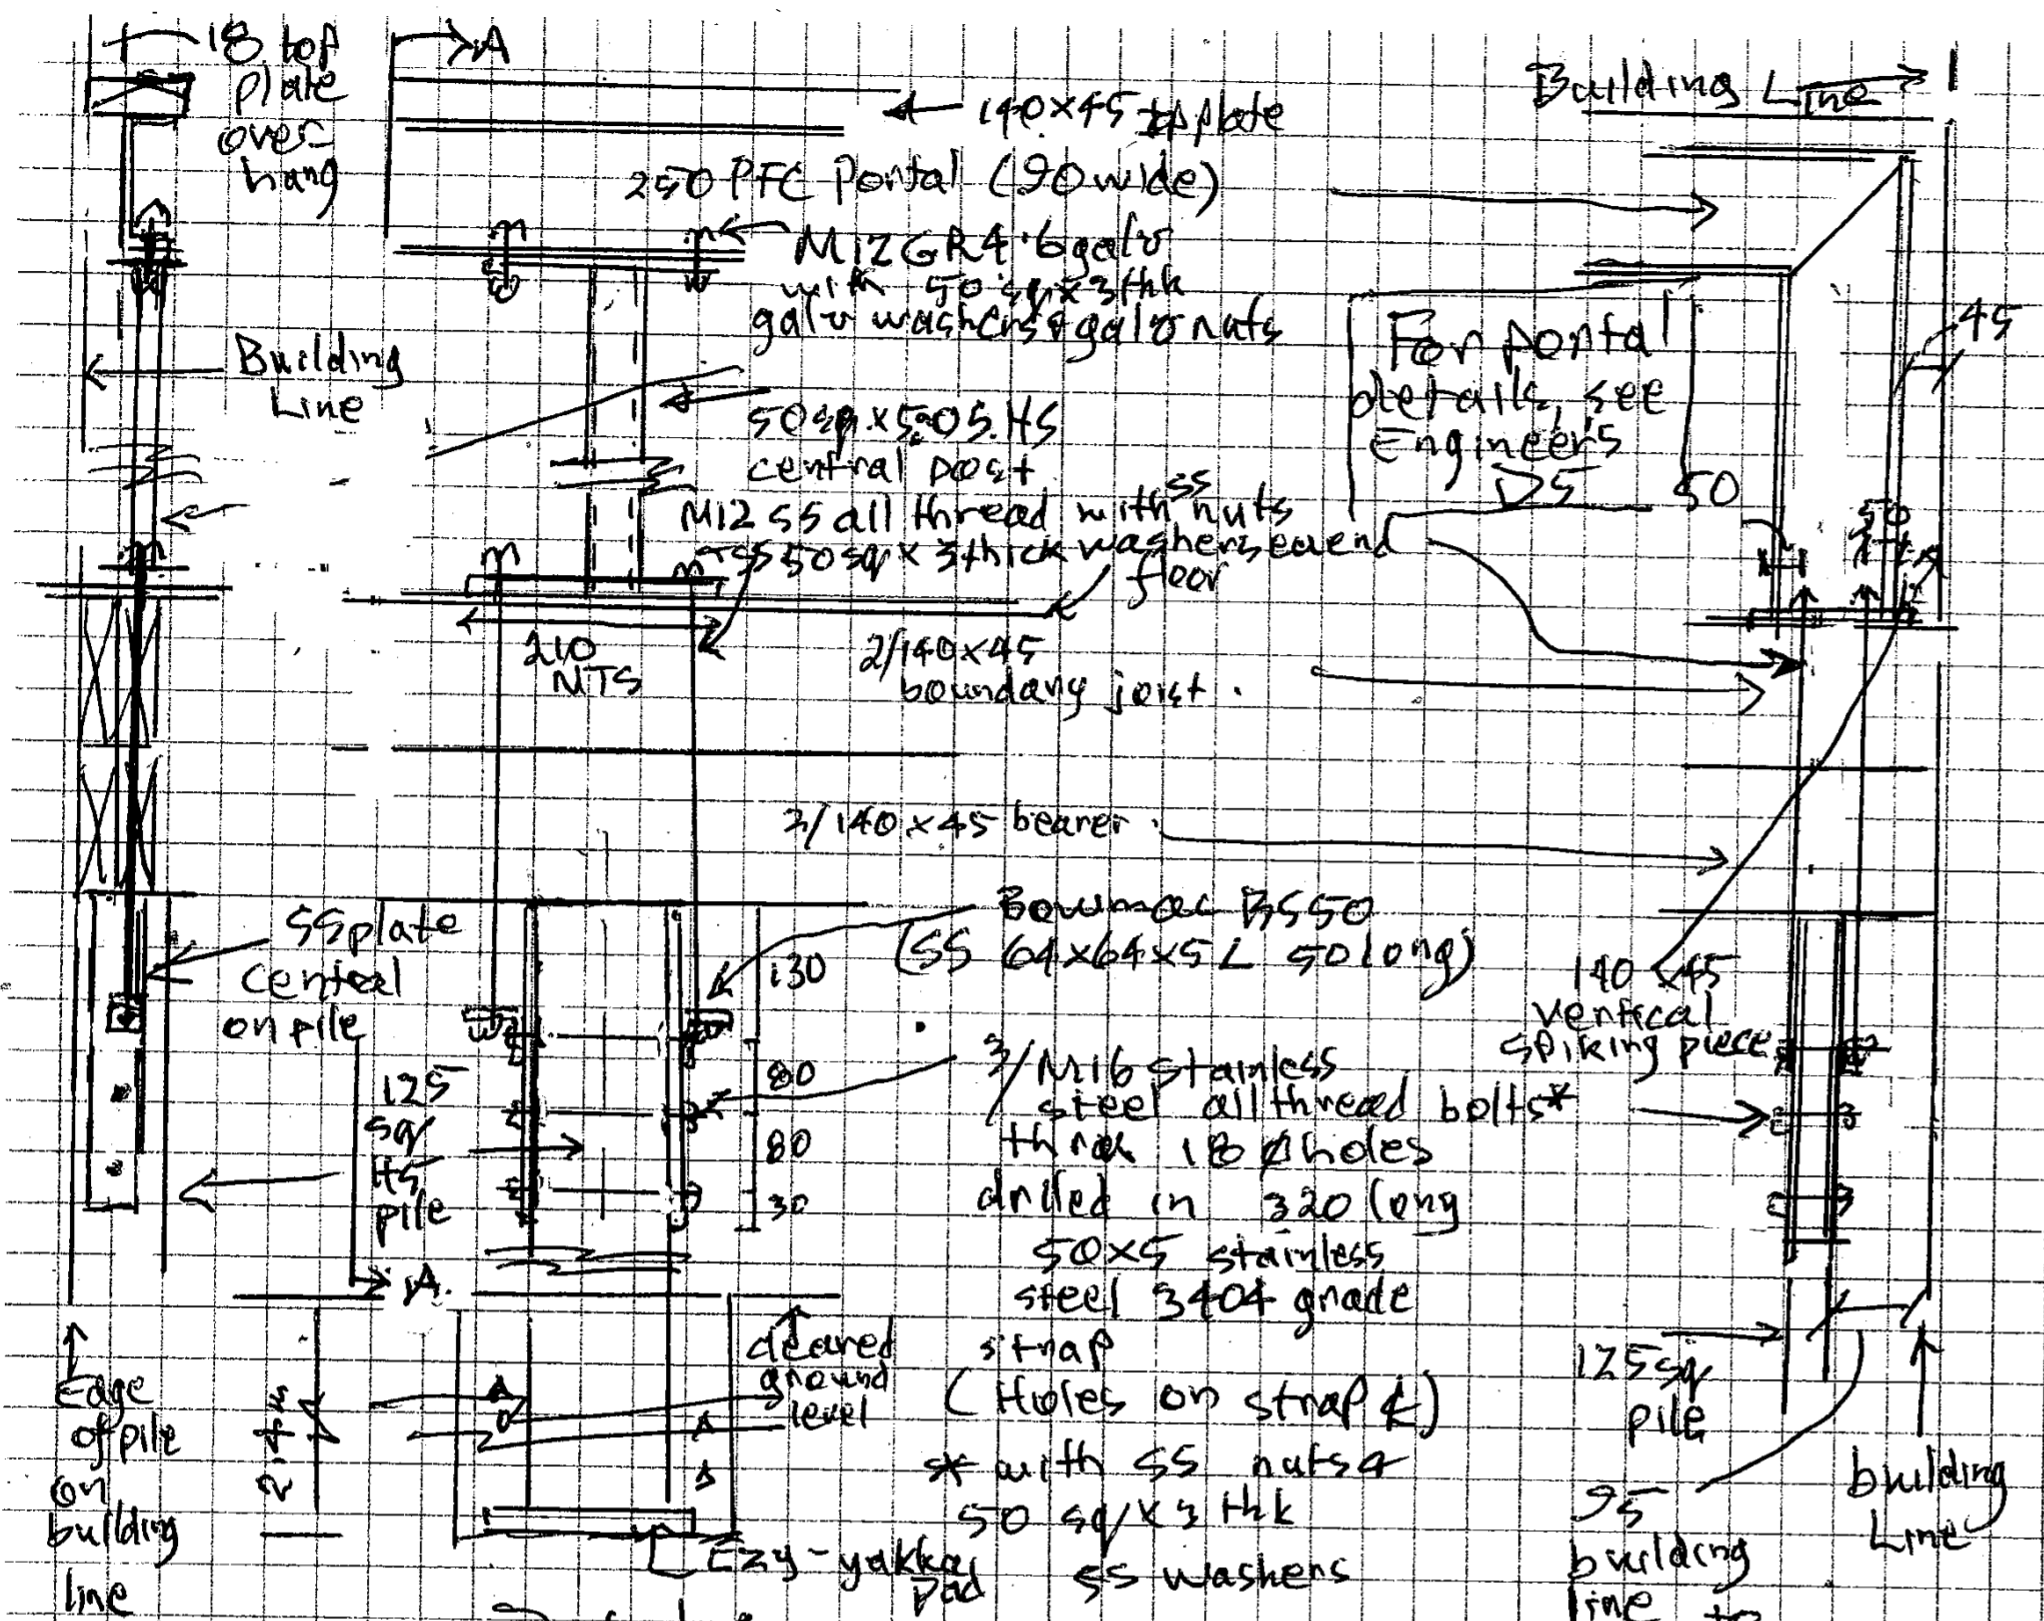 18 top
plate
over-
hang
A
140x45 top plate
Building Line
250 PFC Portal (90 wide)
M12 GR 4.6 galv
with 50 sq x 3 thk
galv washers & galv nuts
Building
Line
For portal
details, see
Engineers
D5
45
50 sq. x 5.0 S.HS
central post
50
50
M12 SS all thread with SS nuts
SS 50 sq x 3 thick washers ea end
floor
210
NTS
2/140x45
boundary joist.
2/140x45 bearer.
SS plate
central
on pile
Bowmac BS50
(SS 64x64x5 L 50 long)
130
80
80
30
140x45
vertical
spiking piece
125
sq
HS
pile
3/M16 stainless
steel all thread bolts*
thru 18 Ø holes
drilled in 320 long
50x5 stainless
steel 3404 grade
strap
(Holes on strap ℄)
* with SS nuts &
50 sq x 3 thk
SS washers
A.
cleared
ground
level
Edge
of pile
on
building
line
2.4m
Ezy-yakka
pad
125 sq
pile
95
building
line to
building
Line